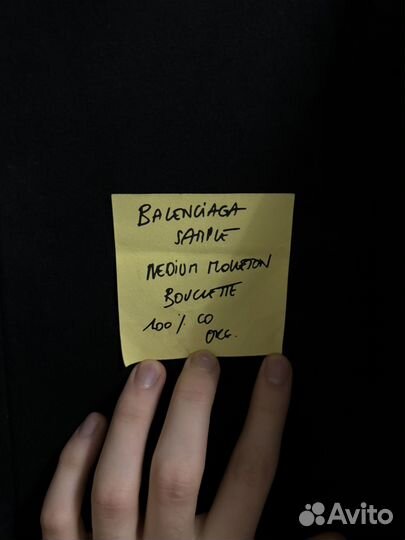 BALENCiAGA
SAMPLE
MEDIUM MOLLETON
BOUCLETTE
100% CO
ORG.
Avito